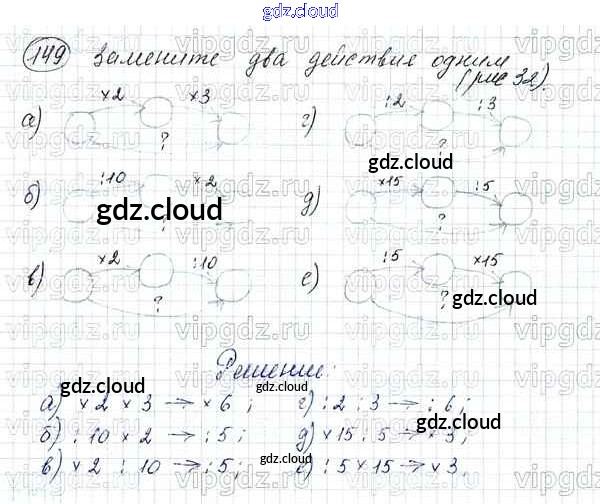 gdz.cloud
149 Замените два действия одним
(рис 32).
а) ×2 ×3 ? г) :2 :3 ?
gdz.cloud
б) :10 ×2 ? д) ×15 :5 ?
gdz.cloud
в) ×2 :10 ? е) :5 ×15 ?
gdz.cloud
Решение:
gdz.cloud gdz.cloud
а) ×2 ×3 → ×6; г) :2 :3 → :6;
gdz.cloud
б) :10 ×2 → :5; д) ×15 :5 → ×3;
в) ×2 :10 → :5; е) :5 ×15 → ×3.
gdz.cloud
vipgdz.ru